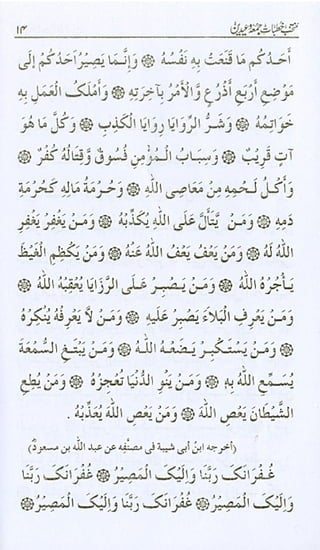 منتخب خطبات جمعہ و عیدین ۱۴
أَحَدَكُم مَا قَنَعَتْ بِهِ نَفْسُهُ ۞ وَإِنَّمَا يَصِيْرُ أَحَدُكُمْ إِلَى
مَوْضِعِ أَرْبَعِ أَذْرُعٍ وَّالْأَمْرُ بِآخِرَتِهِ ۞ وَأَمْلَكُ الْعَمَلِ بِهِ
خَوَاتِمُهُ ۞ وَشَرُّ الرِّوَايَا رِوَايَا الْكَذِبِ ۞ وَكُلُّ مَا هُوَ
آتٍ قَرِيْبٌ ۞ وَسِبَابُ الْمُؤْمِنِ فُسُوقٌ وَّقِتَالُهُ كُفْرٌ ۞
وَأَكْلُ لَحْمِهِ مِنْ مَعَاصِى اللهِ ۞ وَحُرْمَةُ مَالِهِ كَحُرْمَةِ
دَمِهِ ۞ وَمَنْ يَّتَأَلَّ عَلَى اللهِ يُكَذِّبْهُ ۞ وَمَنْ يَغْفِرْ يَغْفِرِ
اللهُ لَهُ ۞ وَمَنْ يَعْفُ يَعْفُ اللهُ عَنْهُ ۞ وَمَنْ يَكْظِمِ الْغَيْظَ
يَأْجُرْهُ اللهُ ۞ وَمَنْ يَصْبِرْ عَلَى الرَّزَايَا يُعْقِبْهُ اللهُ ۞
وَمَنْ يَعْرِفِ الْبَلَاءَ يَصْبِرْ عَلَيْهِ ۞ وَمَنْ لَّا يَعْرِفْهُ يُنْكِرْهُ
۞ وَمَنْ يَسْتَكْبِرْ يَضَعْهُ اللهُ ۞ وَمَنْ يَبْتَغِ السُّمْعَةَ
يُسَمِّعِ اللهُ بِهِ ۞ وَمَنْ يَنْوِ الدُّنْيَا تُعْجِزْهُ ۞ وَمَنْ يُطِعِ
الشَّيْطَانَ يَعْصِ اللهَ ۞ وَمَنْ يَعْصِ اللهَ يُعَذِّبْهُ .
(أخرجه ابنُ أبى شيبة فى مصنَّفِه عن عبد الله بن مسعودؓ)
غُفْرَانَكَ رَبَّنَا وَإِلَيْكَ الْمَصِيْرُ ۞ غُفْرَانَكَ رَبَّنَا
وَإِلَيْكَ الْمَصِيْرُ ۞ غُفْرَانَكَ رَبَّنَا وَإِلَيْكَ الْمَصِيْرُ ۞